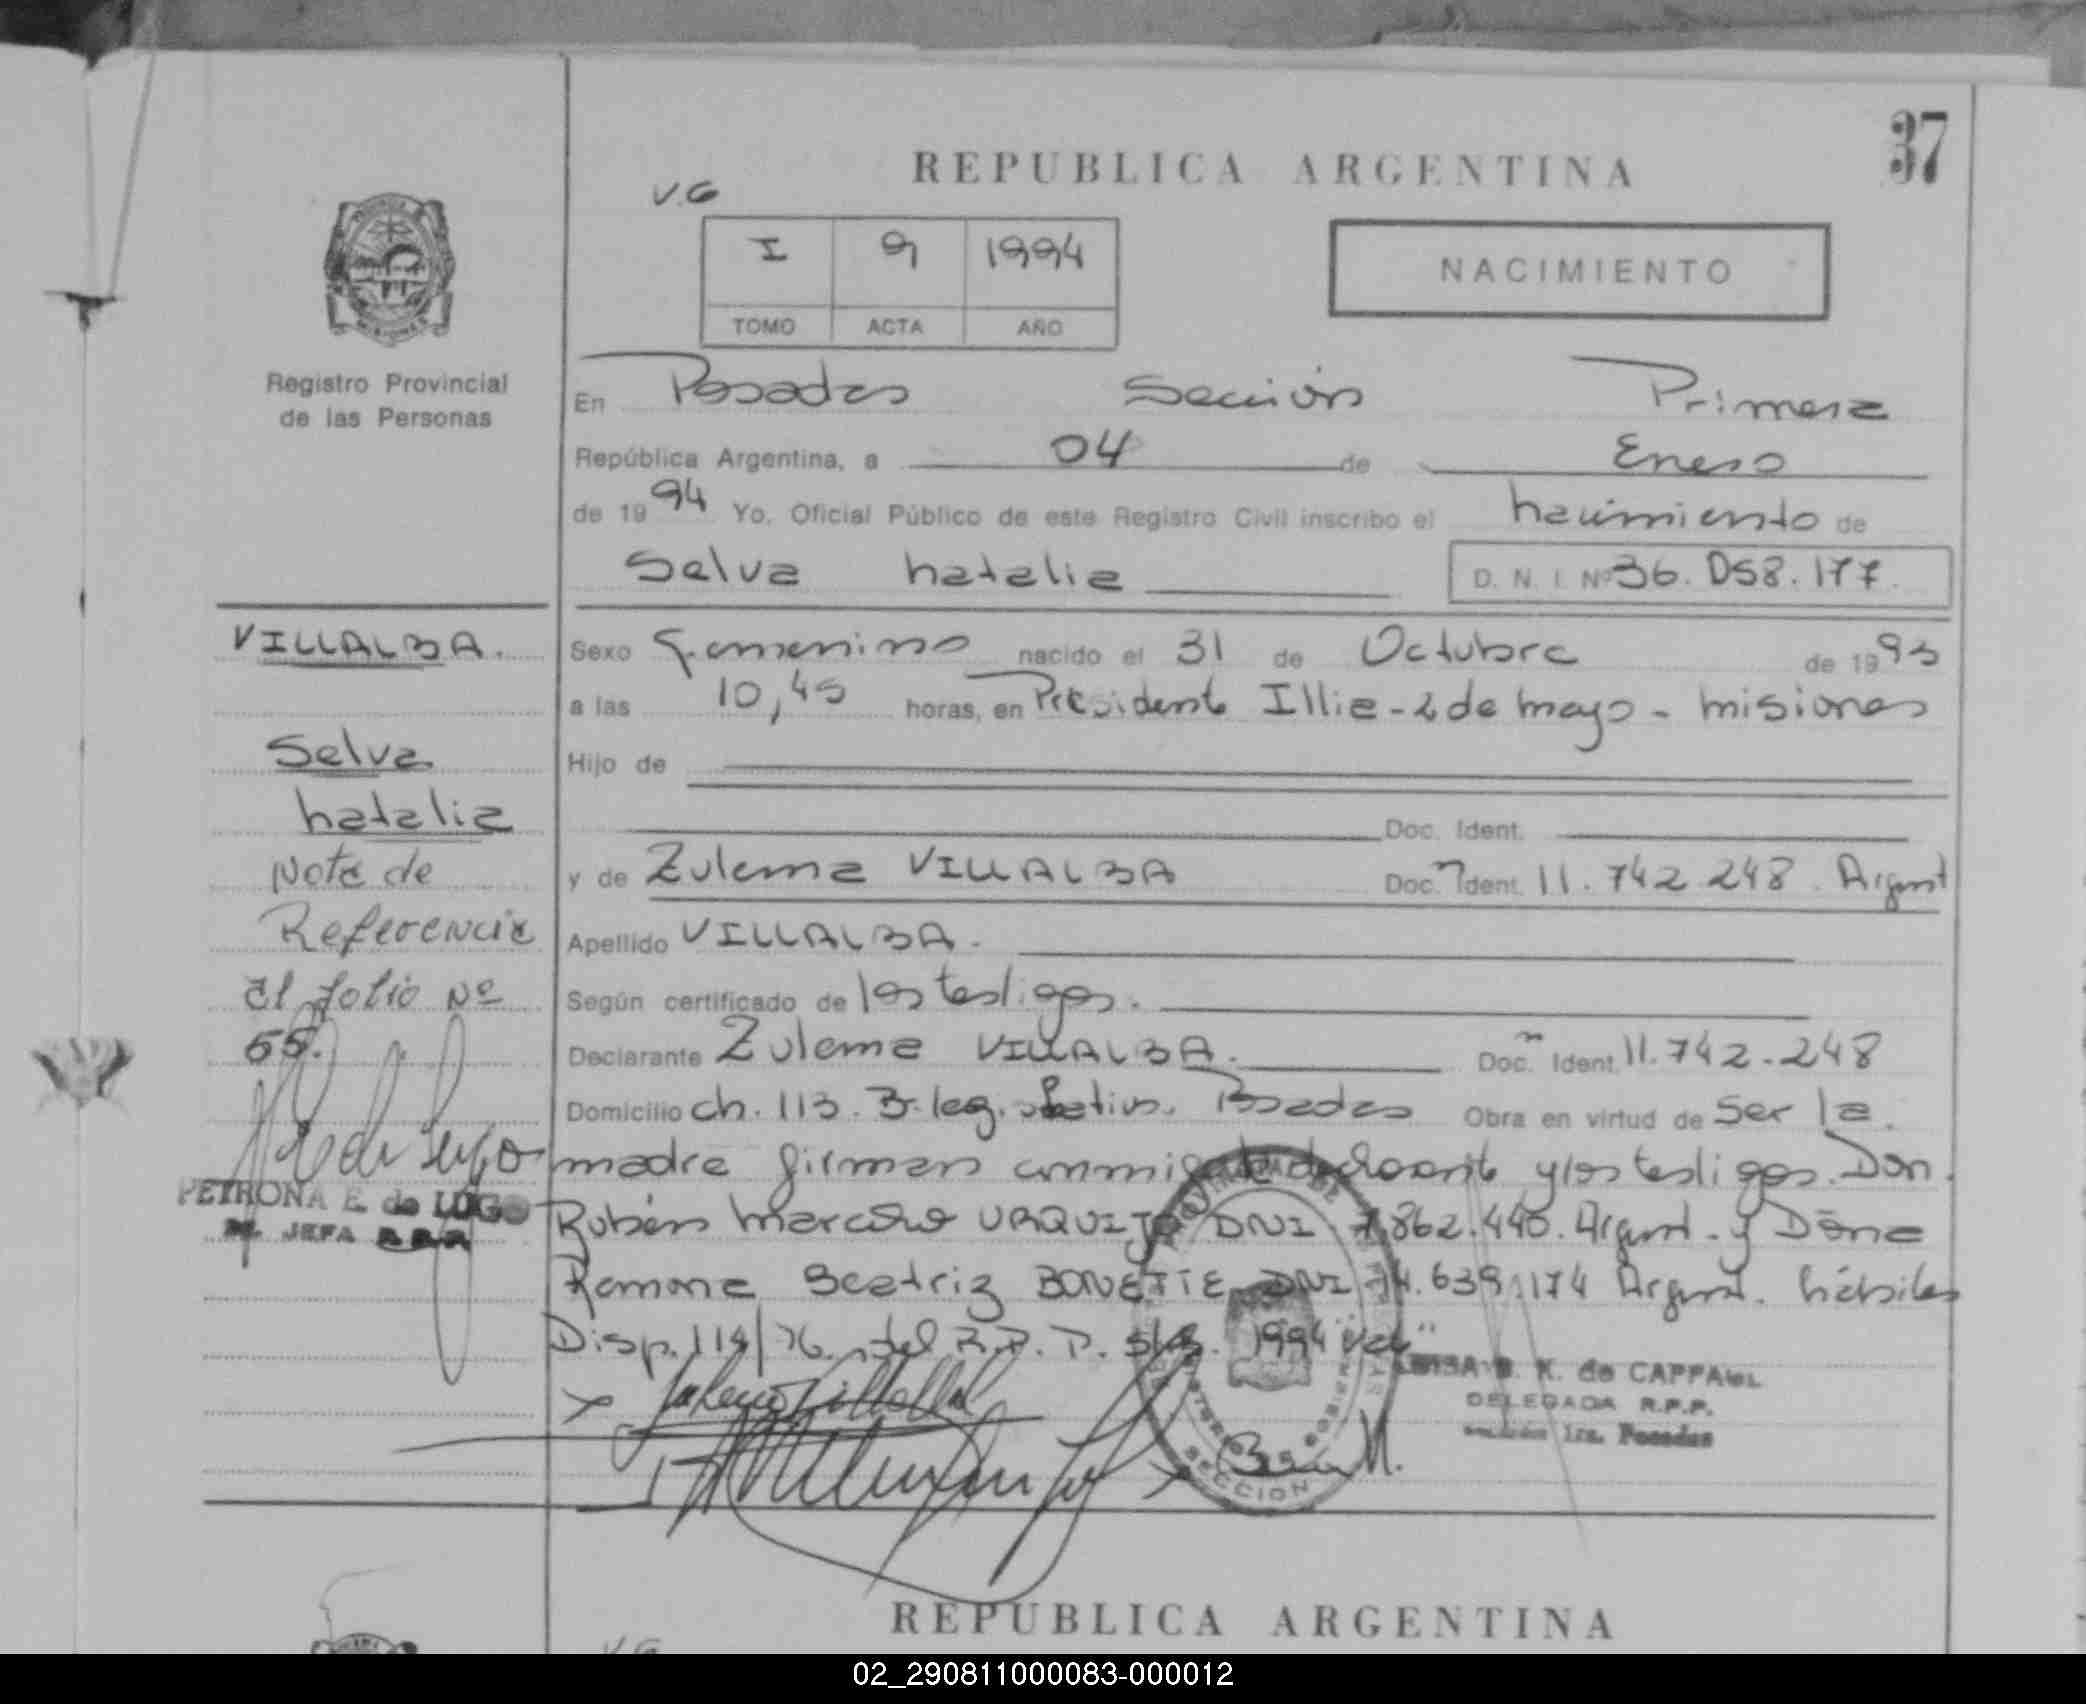 37
REPUBLICA ARGENTINA
V.G
I 9 1994
TOMO ACTA AÑO
NACIMIENTO
Registro Provincial
de las Personas
En Posadas Sección Primera
República Argentina, a 04 de Enero
de 1994 Yo, Oficial Público de este Registro Civil inscribo el nacimiento de
Selva Natalia D. N. I. Nº 36.058.177.
VILLALBA.
Selva
Natalia
Nota de
Referencia
al folio Nº
55.
PETRONA E. de LUGO
JEFA
Sexo Femenino nacido el 31 de Octubre de 1993
a las 10,45 horas, en Presidente Illia - 2 de mayo - misiones
Hijo de
Doc. Ident.
y de Zulema VILLALBA Doc. Ident. 11.742.248. Argent
Apellido VILLALBA.
Según certificado de los testigos.
Declarante Zulema VILLALBA. Doc. Ident. 11.742.248
Domicilio ch. 113. Posadas Obra en virtud de ser la
madre firman conmigo declarante y los testigos. Don
Rubén Marcelino URQUIJO DNI 7.862.440. Argent. y Doña
Ramona Beatriz BONETTE DNI 14.639.174 Argent. hábiles
Disp. 114/76. del R.P.P. 1994
de CAPPA
DELEGADA R.P.P.
1ra. Posadas
SECCION
REPUBLICA ARGENTINA
V.G
02_290811000083-000012